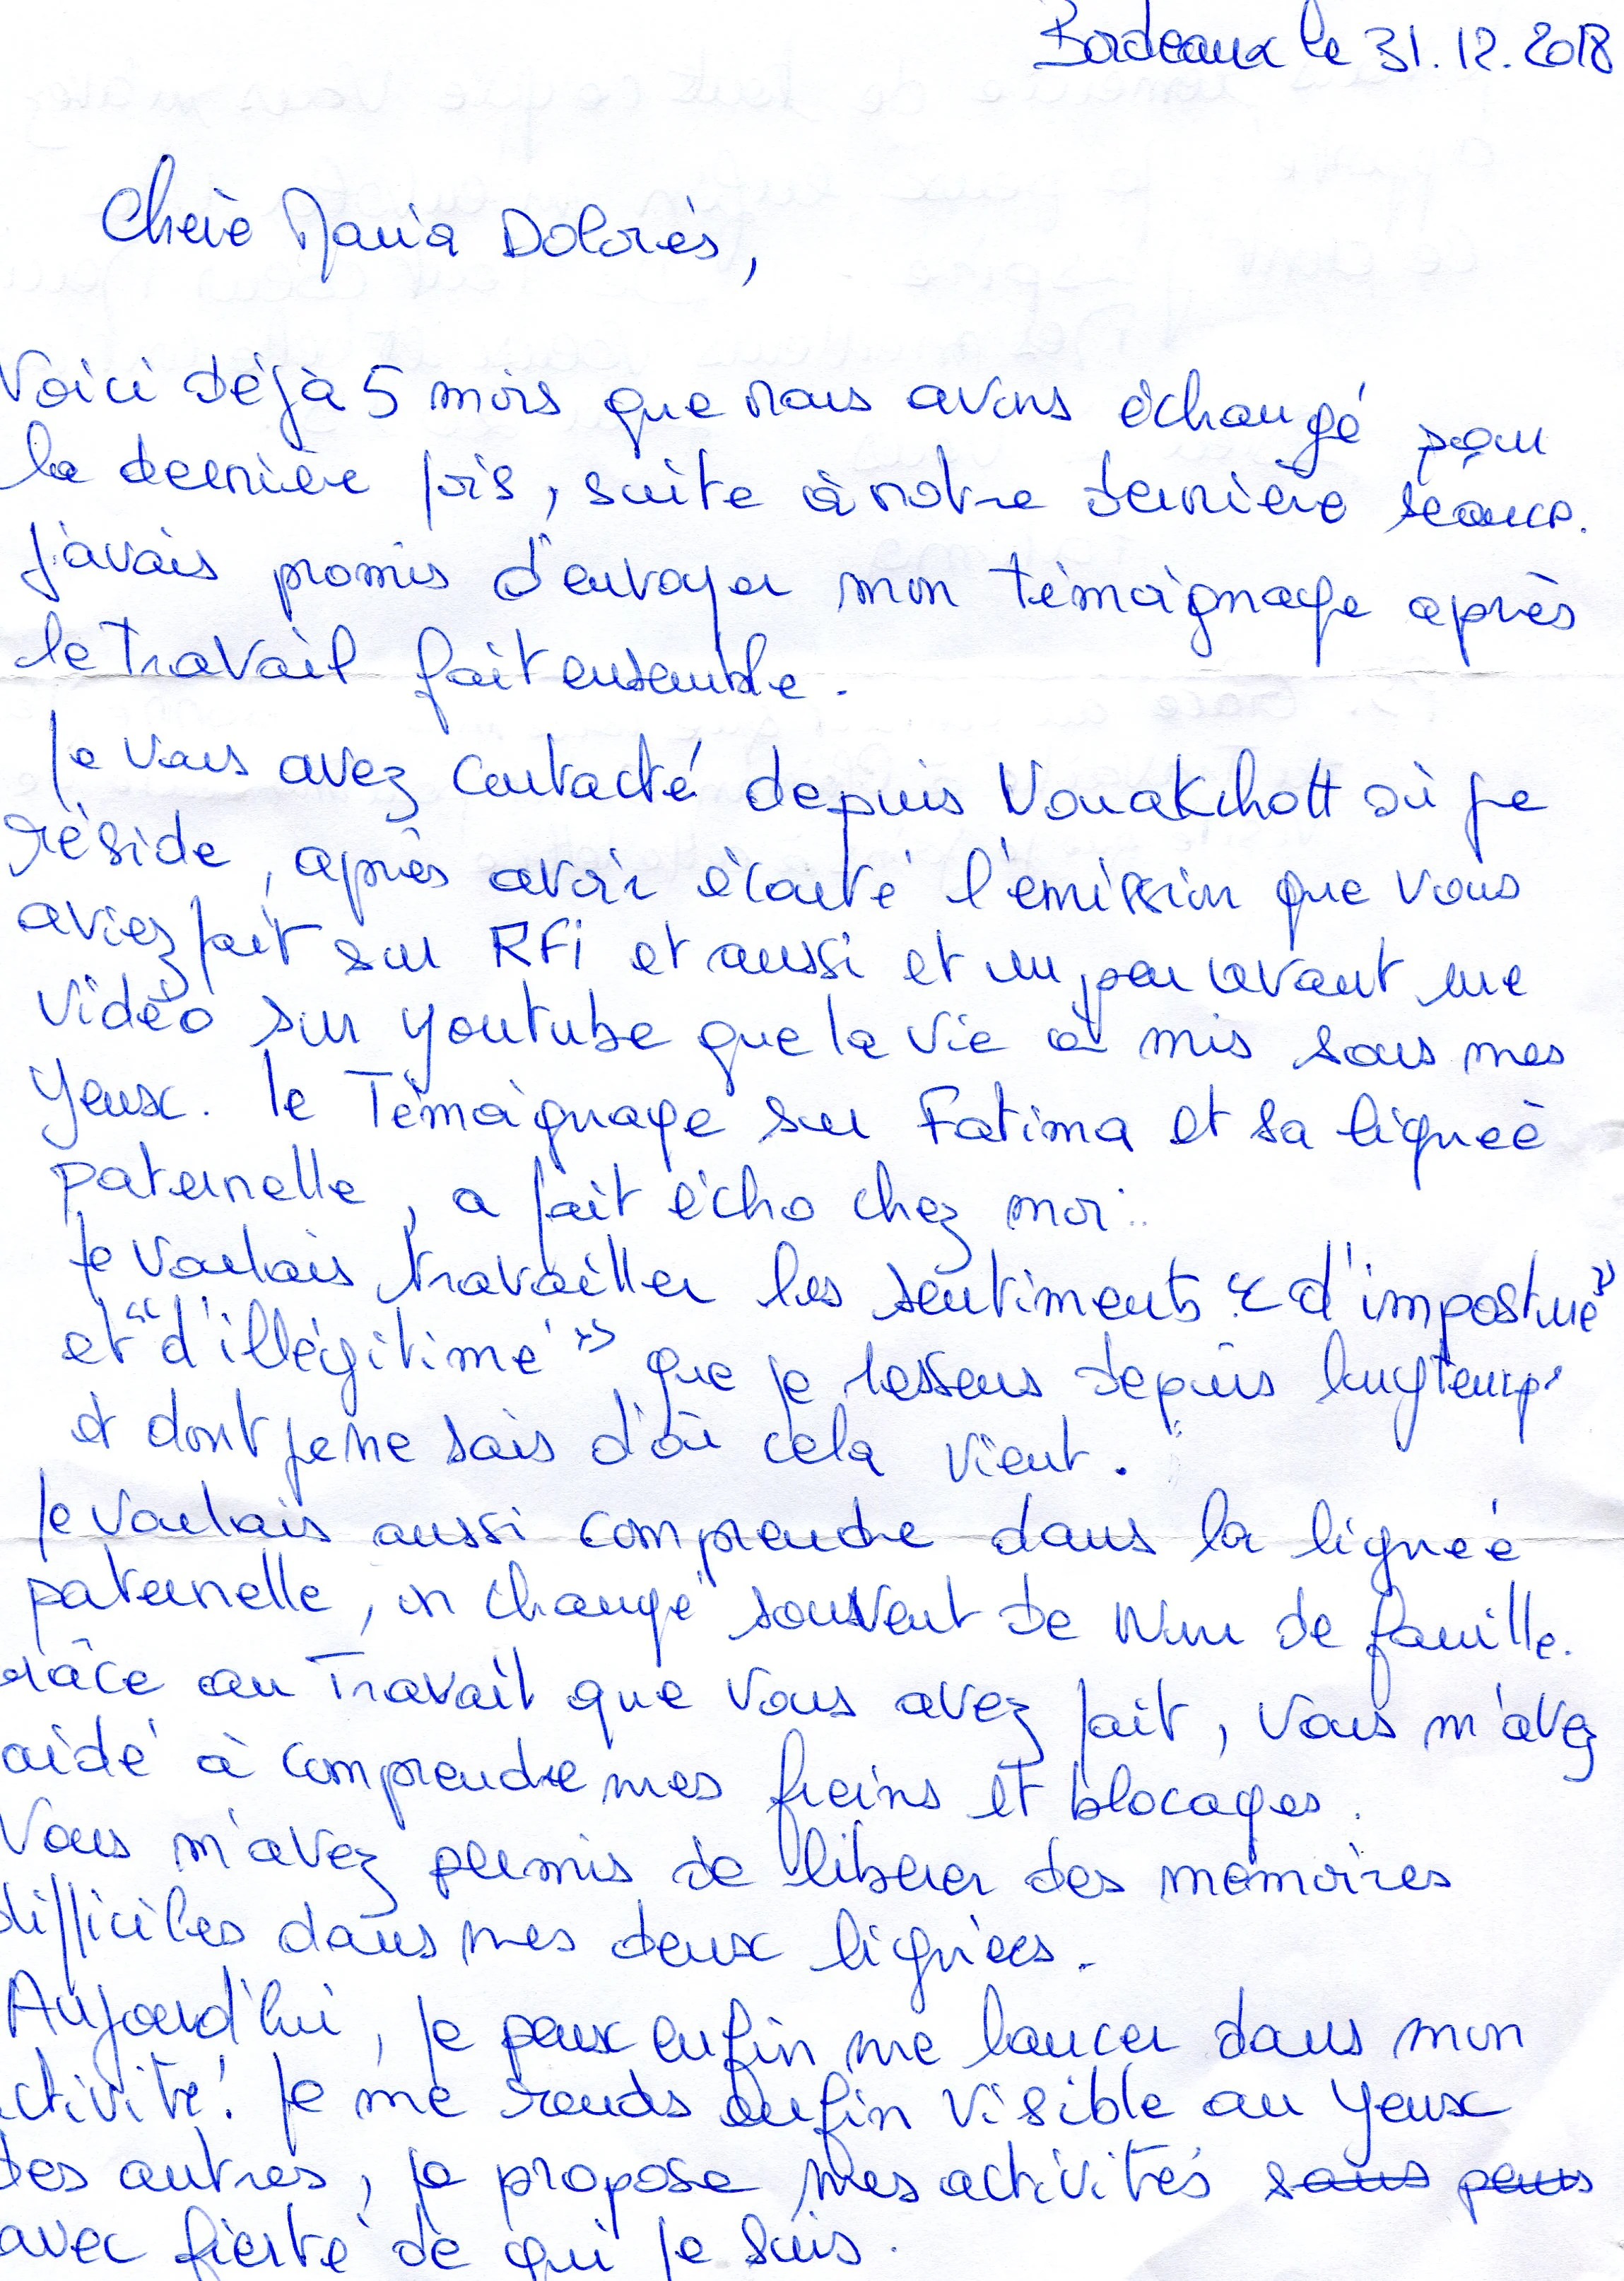 Bordeaux le 31.12.2018
Chère Maria Dolorès,
Voici déjà 5 mois que nous avons échangé pour
la dernière fois, suite à notre dernière séance.
J'avais promis d'envoyer mon témoignage après
le travail fait ensemble.
Je vous avez contacté depuis Nouakchott où je
réside, après avoir écouté l'émission que vous
aviez fait sur RFi et aussi et un peu avant une
vidéo sur youtube que la vie a mis sous mes
yeux. le Témoignage sur Fatima et sa lignée
paternelle, a fait écho chez moi..
Je voulais travailler les sentiments "d'imposture"
et "d'illégitimé" que je ressens depuis longtemps
et dont je ne sais d'où cela vient.
Je voulais aussi comprendre dans la lignée
paternelle, on change souvent de Nom de famille.
râce au Travail que vous avez fait, vous m'avez
aidé à comprendre mes freins et blocages.
Vous m'avez permis de libérer des mémoires
difficiles dans mes deux lignées.
Aujourd'hui, je peux enfin me lancer dans mon
ctivité! Je me rends enfin visible au yeux
des autres, je propose mes activités sans peurs
avec fierté de qui je suis.